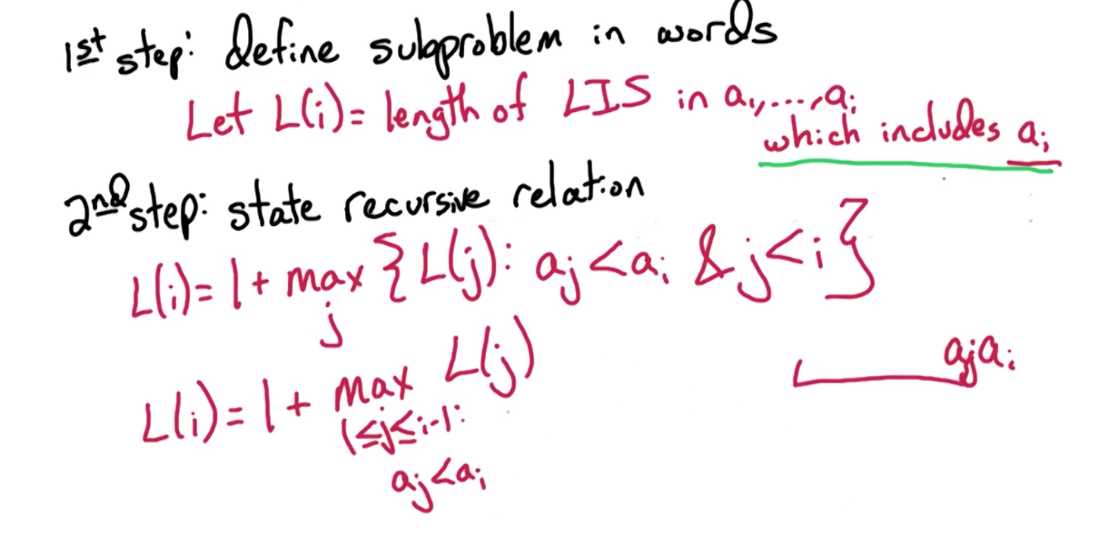 1st step: define subproblem in words
Let L(i)= length of LIS in a₁,...,aᵢ
which includes aᵢ
2nd step: state recursive relation
L(i)= 1 + max {L(j): aⱼ<aᵢ & j<i}
j
aⱼaᵢ
L(i)= 1 + max L(j)
1≤j≤i-1:
aⱼ<aᵢ